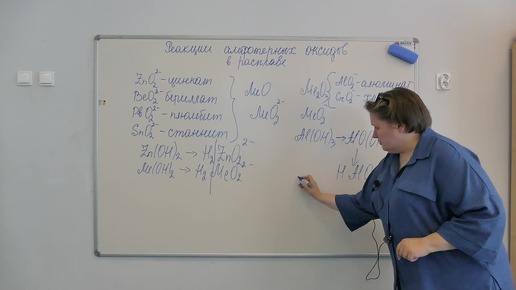 Реакции амфотерных оксидов
в расплаве
ZnO₂²⁻ - цинкат
BeO₂²⁻ - бериллат
PbO₂²⁻ - плюмбит
SnO₂²⁻ - станнит
MeO
MeO₂²⁻
Zn(OH)₂ → H₂ZnO₂²⁻
Me(OH)₂ → H₂MeO₂²⁻
Me₂O₃
AlO₂⁻ - алюминат
CrO₂⁻
MeO₂⁻
Al(OH)₃ →
↓